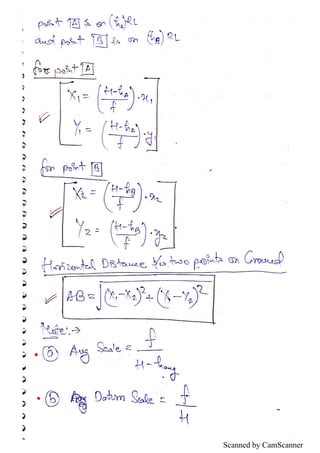 point [A] is on (hA) RL
and point [B] is on (hB) RL
for point [A]
X₁ = ((H-hA)/f) · x₁
Y₁ = ((H-hA)/f) · y₁
for point [B]
X₂ = ((H-hB)/f) · x₂
Y₂ = ((H-hB)/f) · y₂
Horizontal Distance b/w two points on Ground
AB = √((X₁-X₂)²+(Y₁-Y₂)²)
Note:→
(a) Avg Scale = f/(H-havg)
(b) Datum Scale = f/H
Scanned by CamScanner